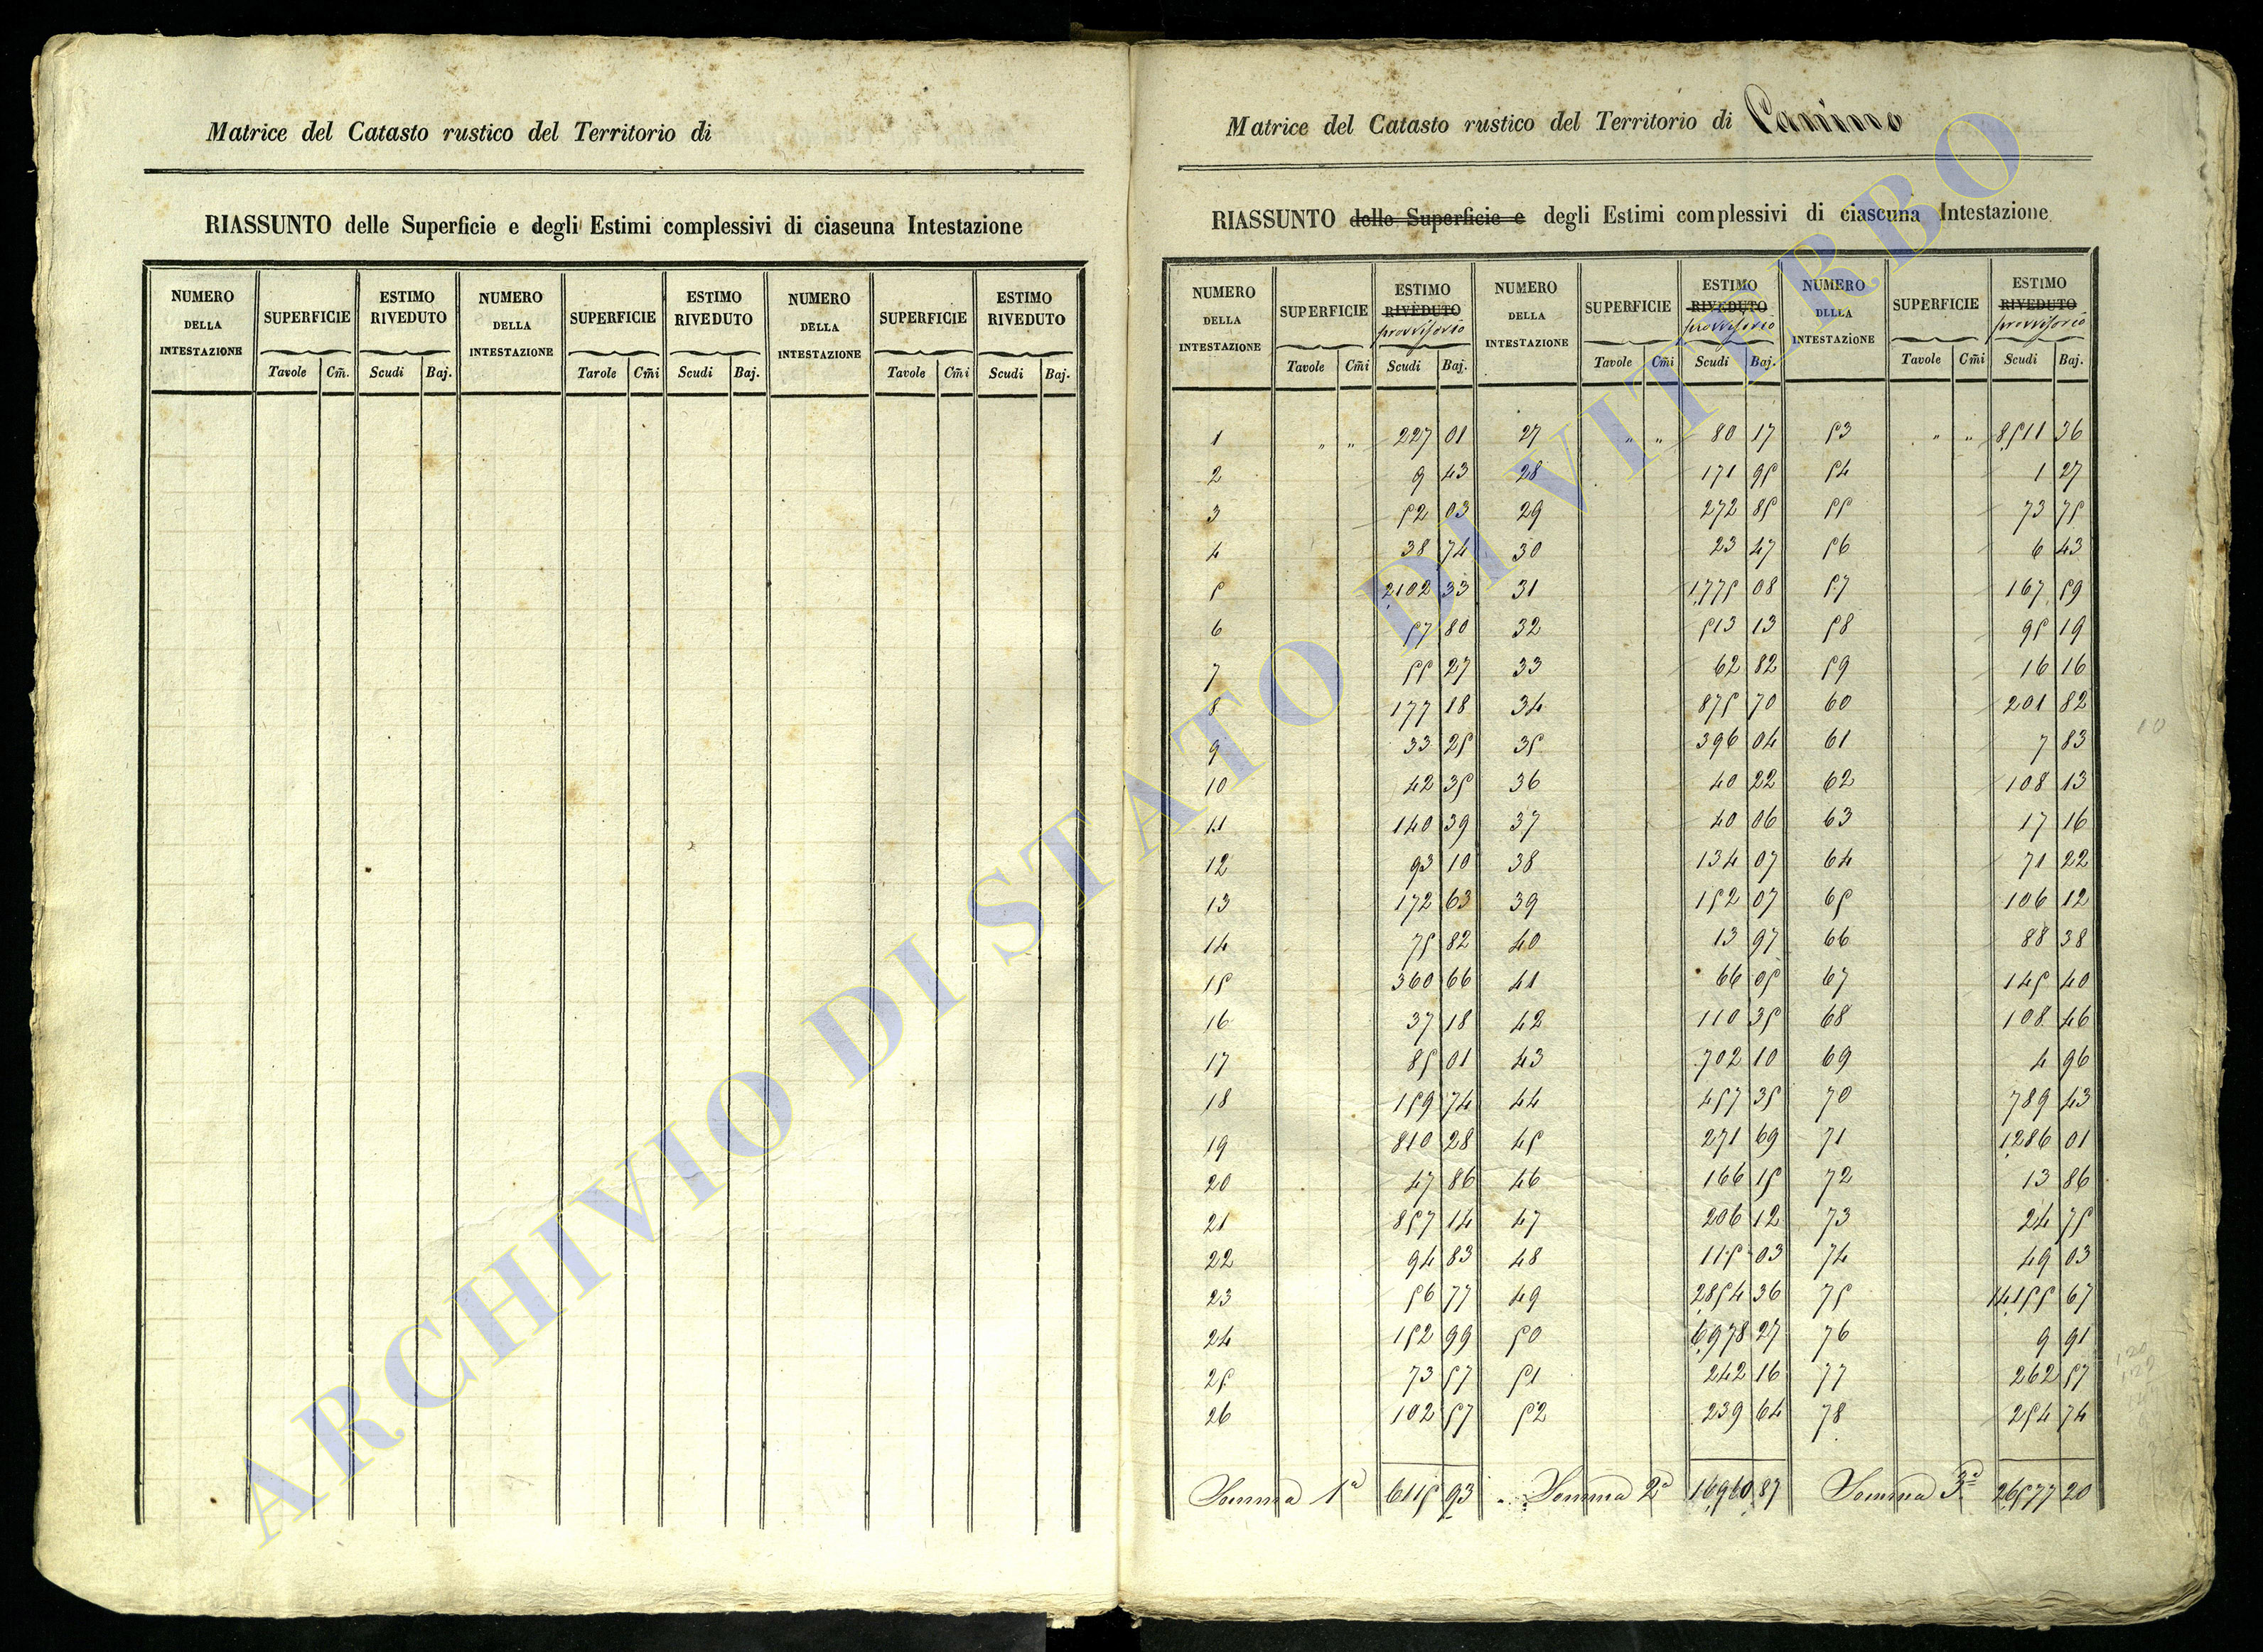 Matrice del Catasto rustico del Territorio di
RIASSUNTO delle Superficie e degli Estimi complessivi di ciaseuna Intestazione
NUMERO DELLA INTESTAZIONE SUPERFICIE ESTIMO RIVEDUTO NUMERO DELLA INTESTAZIONE SUPERFICIE ESTIMO RIVEDUTO NUMERO DELLA INTESTAZIONE SUPERFICIE ESTIMO RIVEDUTO
Tavole Cm̃. Scudi Baj. Tarole Cm̃i Scudi Baj. Tavole Cm̃i Scudi Baj.
Matrice del Catasto rustico del Territorio di Canino
RIASSUNTO delle Superficie e degli Estimi complessivi di ciascuna Intestazione
NUMERO DELLA INTESTAZIONE SUPERFICIE ESTIMO RIVEDUTO provvisorio NUMERO DELLA INTESTAZIONE SUPERFICIE ESTIMO RIVEDUTO provvisorio NUMERO DELLA INTESTAZIONE SUPERFICIE ESTIMO RIVEDUTO provvisorio
Tavole Cm̃i Scudi Baj. Tavole Cm̃i Scudi Baj. Tavole Cm̃i Scudi Baj.
1 " " 227 01 27 " " 80 17 53 " " 8511 36
2 9 43 28 171 95 54 1 27
3 52 03 29 272 85 55 73 75
4 38 74 30 23 47 56 6 43
5 2102 33 31 1775 08 57 167 59
6 57 80 32 513 13 58 95 19
7 55 27 33 62 82 59 16 16
8 177 18 34 875 70 60 201 82
9 33 25 35 396 04 61 7 83
10 42 35 36 40 22 62 108 13
11 140 39 37 40 06 63 17 16
12 93 10 38 134 07 64 71 22
13 172 63 39 152 07 65 106 12
14 75 82 40 13 97 66 88 38
15 360 66 41 66 05 67 145 40
16 37 18 42 110 35 68 108 46
17 85 01 43 702 10 69 4 96
18 159 74 44 457 35 70 789 43
19 810 28 45 271 69 71 1286 01
20 47 86 46 166 15 72 13 86
21 857 14 47 206 12 73 24 75
22 94 83 48 115 03 74 49 03
23 56 77 49 2854 36 75 14155 67
24 152 99 50 6978 27 76 9 91
25 73 57 51 242 16 77 262 57
26 102 57 52 239 64 78 254 74
Somma 1ª 6115 93 Somma 2ª 16960 87 Somma 3ª 26577 20
10
ARCHIVIO DI STATO DI VITERBO